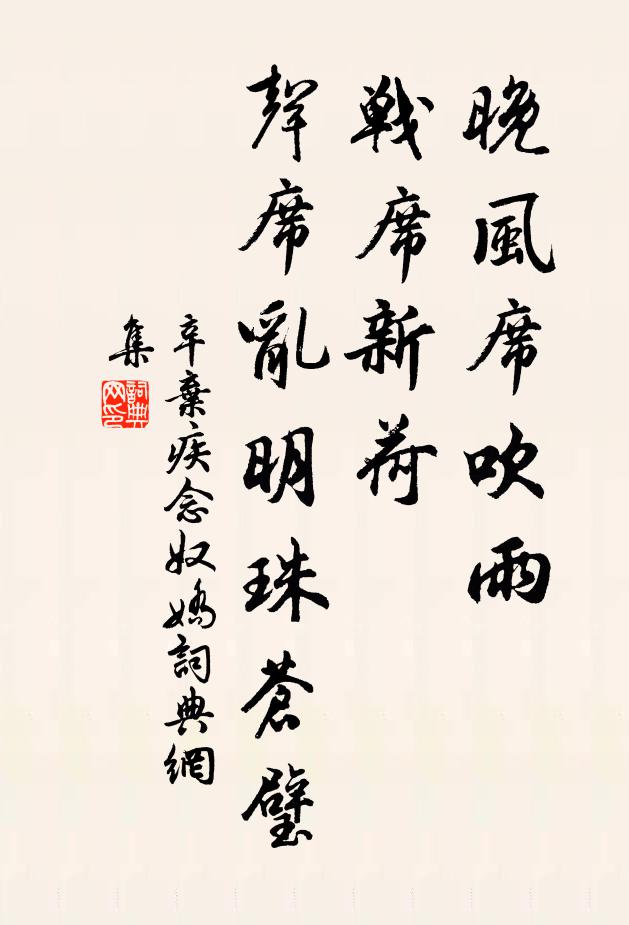 晚風席吹雨
戰席新荷
聲席亂明珠蒼璧
辛棄疾念奴嬌詞典網
集
詞典
网印